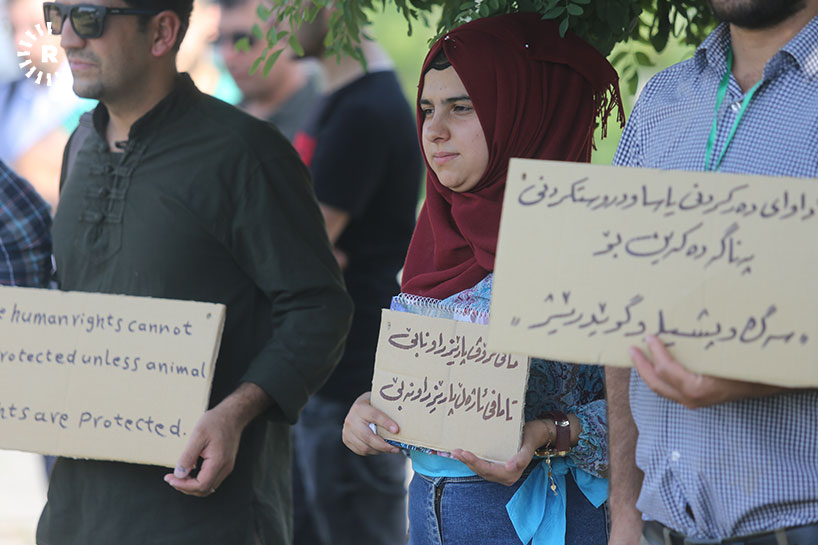 e human rights cannot
rotected unless animal
hts are Protected.
مافی مرۆڤ پارێزراو نابێ
تا مافی ئاژەڵ پارێزراو نەبێ
داوای دەرکردنی یاسا و دروستکردنی
پەناگە دەکەین بۆ
"سەگ و پشیلە و گوێدرێژ"
R